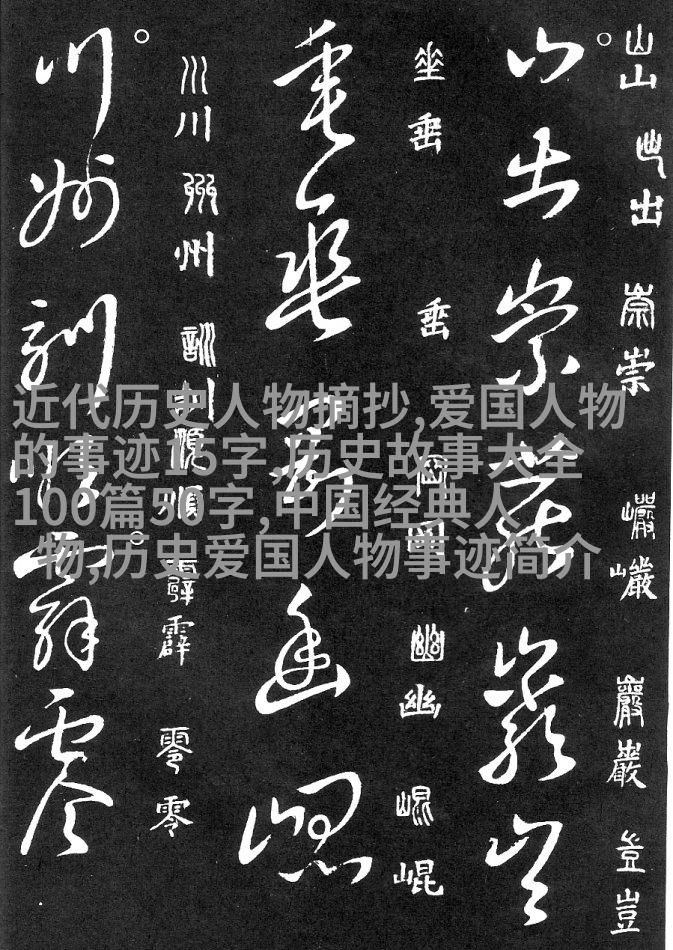 山山 出出 崇崇 巖巖 豈豈
山出崇 豈
垂垂 垂 幽幽 崐崐
垂 幽崐
川川 州州 訓 順 霹霹 零零
川州訓 零
近代历史人物摘抄,爱国人物
的事迹15字,历史故事大全
100篇50字,中国经典人
物,历史爱国人物事迹简介